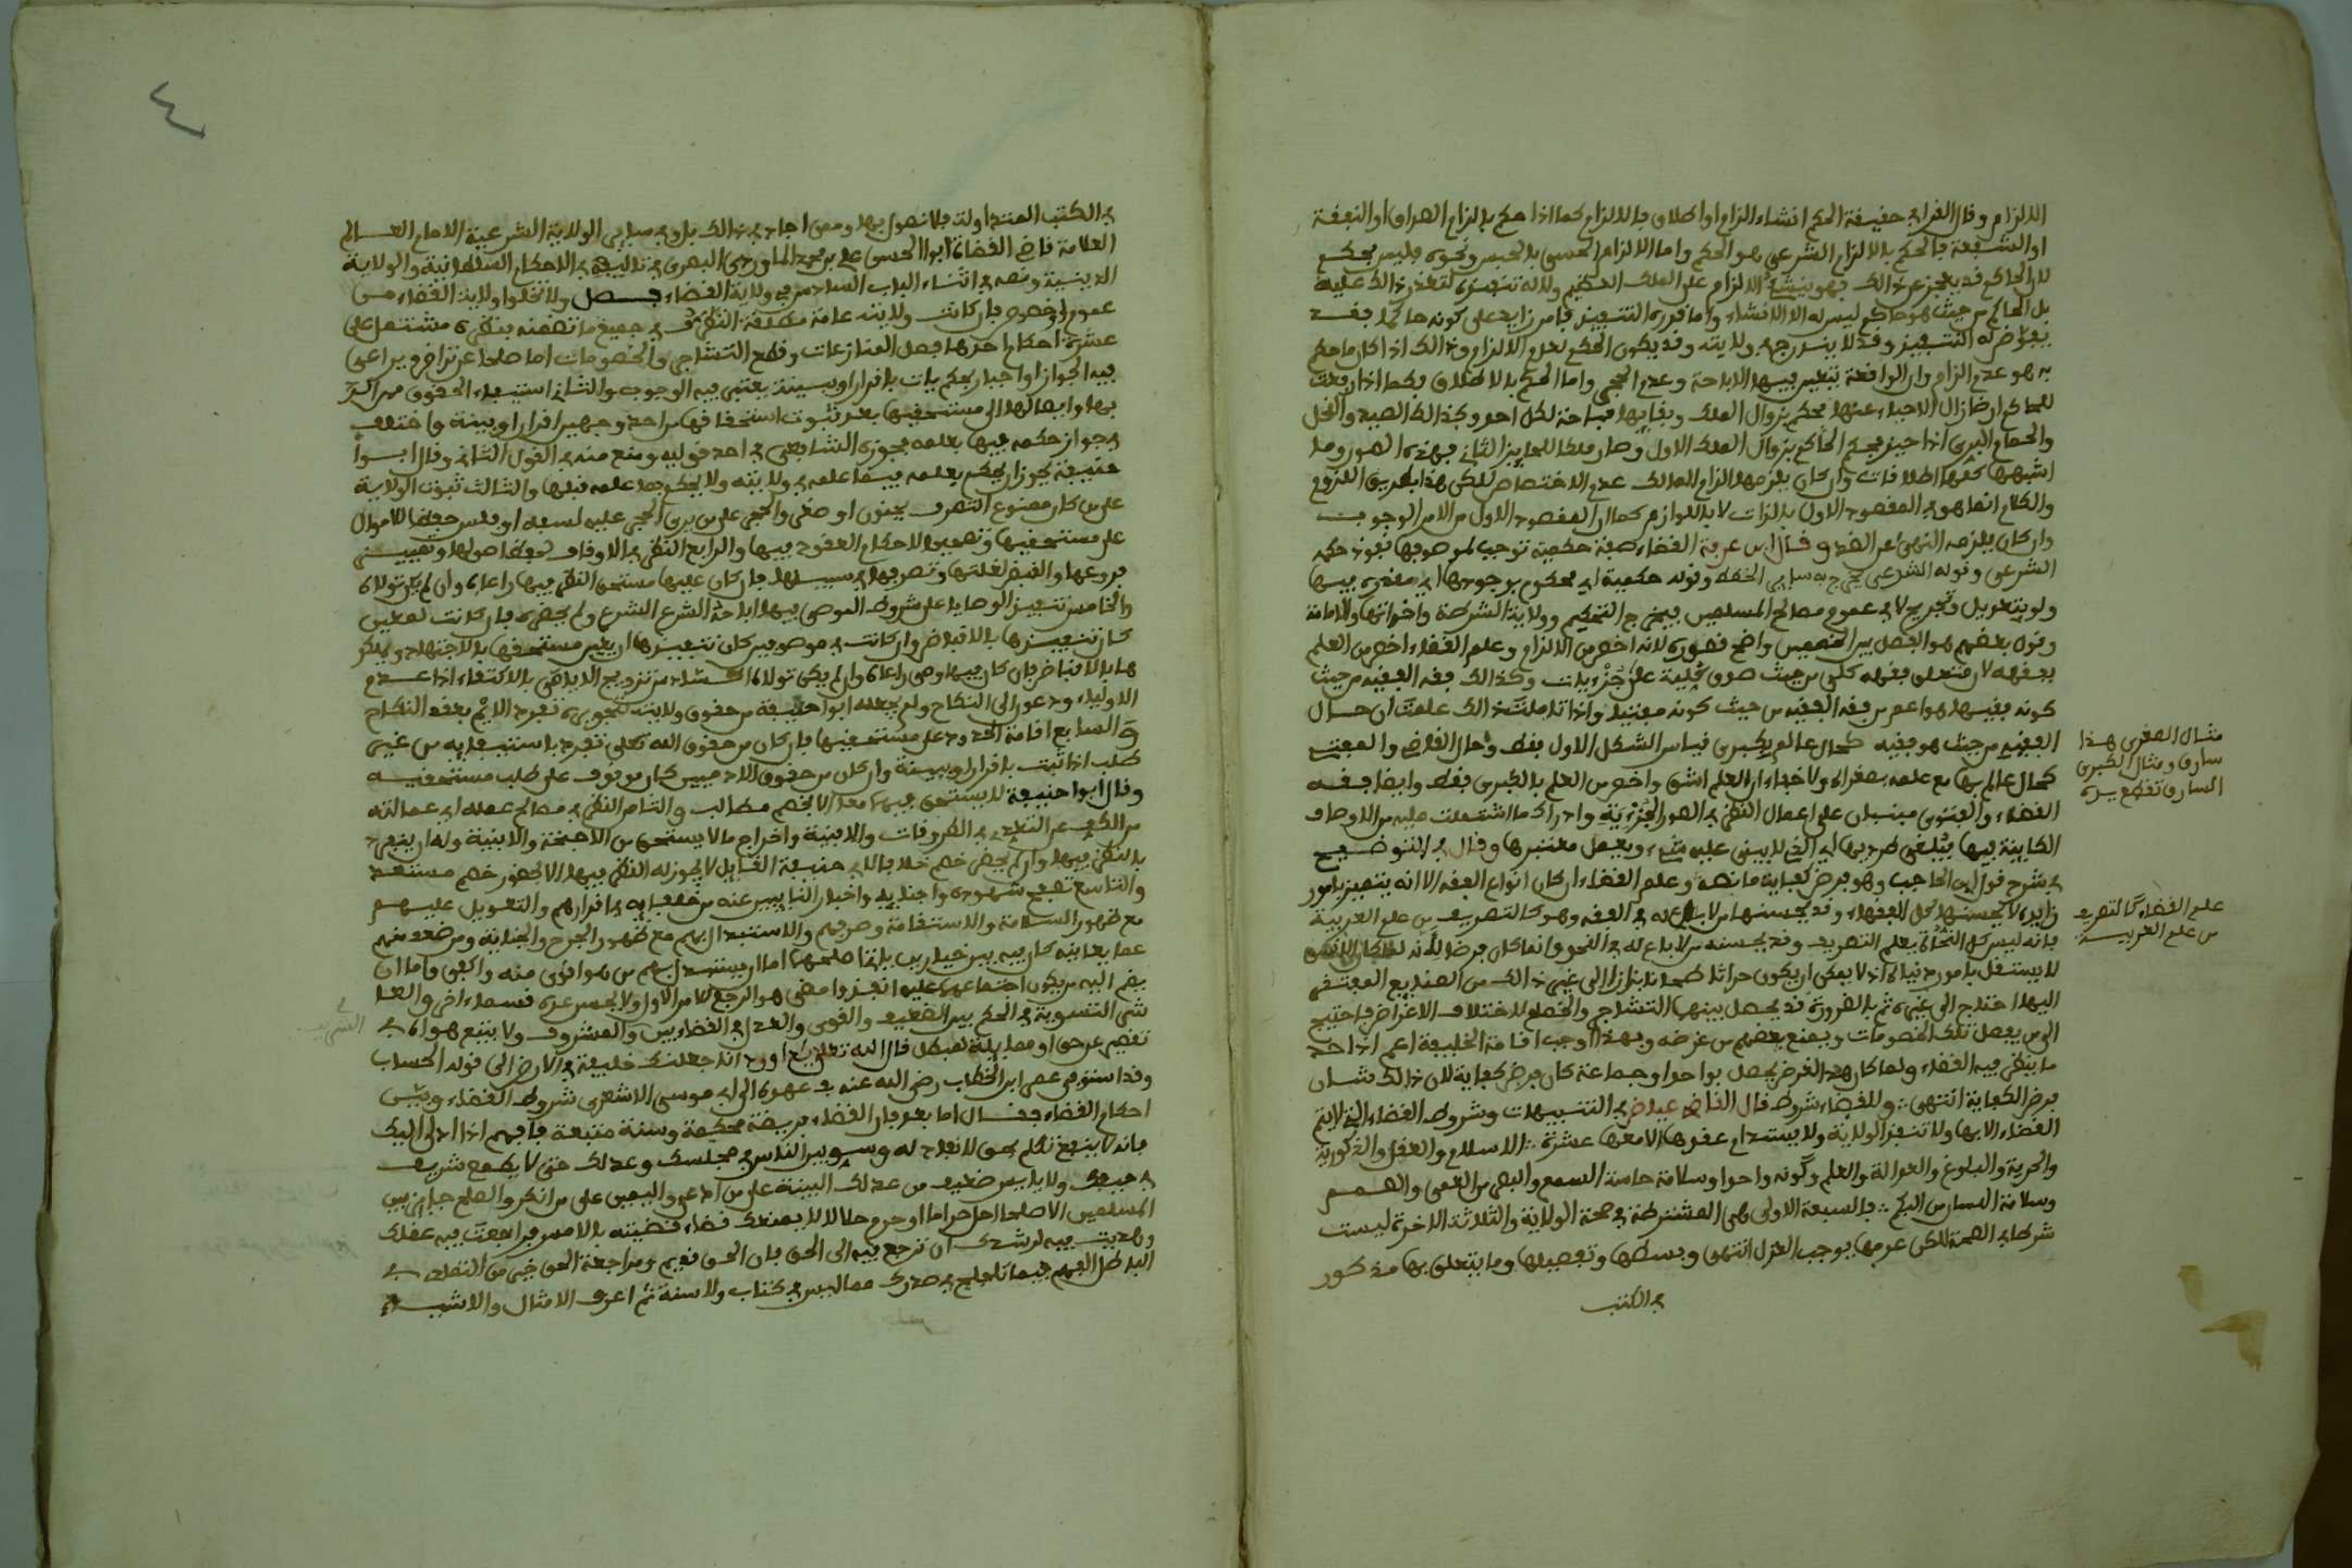 الالزام وقال القرافي حقيقة الحكم انشاء الزام او اطلاق فالالزام كما اذا حكم بالزام الصداق او النفقة
او الشفعة فالحكم بالالزام الشرعي هو الحكم واما الالزام الحسي بالحبس ونحوه فليس بحكم
لان الحاكم قد يعجز عن ذالك فهو ينشئ الالزام على الملك العظيم ولاله تنفيذه لتعذر ذالك عليه
بل الحاكم من حيث هو حاكم ليس له الا الانشاء واما قوة التنفيذ فامر زايد على كونه حاكما فقد
يفوض له التنفيذ وقد لا يندرج في ولايته وقد يكون الحكم لعدم الالزام وذالك اذا كان ما حكم
به هو عدم الزام وان الواقعة تتعين فيها الاباحة وعدم الحجر واما الحكم بالاطلاق فكما اذا رفعت
للحاكم ارض زال الاحياء عنها فحكم بزوال الملك وبقايها مباحة لكل احد وكذالك الصيد والنحل
والحمام البري اذا حيز فحكم الحاكم بزوال الملك الاول وصار ملكا للحايز الثاني فهذه الصور وما
اشبهها كلها اطلاقات وان كان يلزمها الزام المالك عدم الاختصاص لكن هذا بطريق اللزوم
والكلام انما هو في المقصود الاول بالذات لا باللوازم كما ان المقصود الاول من الامر الوجوب
وان كان يلزمه النهي عن الضد وقال ابن عرفة القضاء صفة حكمية توجب لموصوفها نفوذ حكمه
الشرعي وقوله الشرعي يخرج به ساير الخطط وقوله حكمية اي محكوم بوجودها اي مقدرة فيها
ولو بتعديل وتجريح لا في عموم مصالح المسلمين فيخرج التحكيم وولاية الشرطة واخواتها والامامة
وقول بعضهم هو الفصل بين الخصمين واضح قصوره لانه اخص من الالزام وعلم القضاء اخص من العلم
بفقهه لان متعلق فقهه كلي من حيث صدق كلية على جزءيات وكذالك فقه الفقيه من حيث
كونه فقيها هو اعم من فقه الفقيه من حيث كونه مفتيا واذا تاملت ذالك علمت ان حال
الفقيه من حيث هو فقيه كحال عالم بكبرى قياس الشكل الاول فقط وحال القاضي والمفتي
كحال عالم بها مع علمه بصغراه ولا خفاء ان العلم اشق واخص من العلم بالكبرى فقط وايضا فقه
القضاء والفتوى مبنيان على اعمال النظر في الصور الجزءية وادراك ما اشتملت عليه من الاوصاف
الكاينة فيها فيلغي طرديها اي الذي لا يبنى عليه شيء ويعمل معتبرها وقال في التوضيح
في شرح قول ابن الحاجب وهو فرض كفاية ما نصه وعلم القضاء ان كان انواع الفقه الا انه يتميز بامور
زايدة لا يحسنها كل الفقهاء وقد يحسنها من لا باع له في الفقه وهو كالتصريف من علم العربية
فانه ليس كل النحاة يعلم التصريف وقد يحسنه من لا باع له في النحو وانما كان فرضا لانه لما كان الانسان
لا يستقل بامور دنياه اذ لا يمكن ان يكون حراثا طحانا بنازا الى غير ذالك من الصنايع المفتقر
اليها احتاج الى غيره ثم بالضرورة قد يحصل بينهما التشاجر والخصام لاختلاف الاغراض فاحتيج
الى من يفصل تلك الخصومات ويمنع بعضهم من غرضه وبهذا وجب اقامة الخليفة اعم اذ احد
ما ينظر فيه القضاء ولما كان هذا الغرض يحصل بواحد او جماعة كان فرض كفاية لان ذالك شان
فرض الكفاية انتهى وللقضاء شروط قال القاضي عياض في التنبيهات وشروط القضاء التي لا يتم
القضاء الا بها ولا تنعقد الولاية ولا يستدام عقدها الا معها عشرة الاسلام والعقل والذكورية
والحرية والبلوغ والعدالة والعلم وكونه واحدا وسلامة حاسة السمع والبصر من العمى والصمم
وسلامة اللسان من البكم فالسبعة الاولى هي المشترطة في صحة الولاية والثلاثة الاخرة ليست
شرطا في الصحة لكن عدمها يوجب العزل انتهى وبسطها وتفصيلها وما يتعلق بها مذكور
في الكتب
مثال الصغرى هذا
سارق ومثال الكبرى
السارق تقطع يده
علم القضاء كالتصريف
من علم العربية
٤
في الكتب المتداولة فلا نطول بها وممن اجاد في ذالك بل وفي ساير الولاية الشرعية الامام العالم
العلامة قاضي القضاة ابوا الحسن علي بن محمد الماوردي البصري في تاليفه في الاحكام السلطانية والولاية
الدينية ونصه في اثناء الباب السادس في ولاية القضاء فصل ولا تخلوا ولاية القضاء من
عموم او خصوص فان كانت ولايته عامة مطلقة التصرف في جميع ما تضمنه بنظره مشتمل على
عشرة احكام احدها فصل المنازعات وقطع التشاجر والخصومات اما صلحا عن تراض ويراعى
فيه الجواز او اجبار بحكم بات باقرار او ببينة يعتبر فيه الوجوب والثاني استيفاء الحقوق ممن
بها وايصالها الى مستحقيها بعد ثبوت استحقاقها من احد وجهين اقرار او بينة واختلف
في جواز حكمه فيها بعلمه فجوزه الشافعي في احد قوليه ومنع منه في القول الثاني وقال ابوا
حنيفة يجوز ان يحكم بعلمه فيما علمه في ولايته ولا يحكم بما علمه قبلها والثالث ثبوت الولاية
على من كان ممنوع التصرف بجنون او صغر والحجر على من يرى الحجر عليه لسفه او فلس حفظا للاموال
على مستحقيها وتصحيحا لاحكام العقود فيها والرابع النظر في الاوقاف بحفظ اصولها وتعيين
فروعها والقبض لغلتها وتصريفها في سبيلها فان كان عليها مستحق النظر فيها راعاه وان لم يكن تولاه
والخامس تنفيذ الوصايا على شروط الموصي فيما اباحه الشرع ولم يحضره فان كانت لمعين
كان تنفيذها بالاقباض وان كانت في موصوفين كان تنفيذها ان يعين مستحقها بالاجتهاد ويملكو
ها بالاقباض فان كان فيها وصي راعاه وان لم يكن تولاه السادس تزويج الايامى بالاكفاء اذا عدم
الاولياء ودعون الى النكاح ولم يجعله ابوا حنيفة من حقوق ولايته لتجويزه تفرد الايم بعقد النكاح
والسابع اقامة الحدود على مستحقيها فان كان من حقوق الله تعلى تفرد باستيفايه من غير
طلب اذا ثبت باقرار او ببينة وان كان من حقوق الادميين كان موقوف على طلب مستحقيه
وقال ابوا حنيفة لا يستحق فيهما معا الا لخصم مطالب والثامن النظر في مصالح عمله اي عمالته
من الكف عن التعدي في الطروقات والابنية واخراج ما لا يستحق من الاجنحة والابنية وله ان ينفرد
بالنظر فيها وان لم يحضر خصم خلافا لابي حنيفة القايل لا يجوز له النظر فيها الا بحضور خصم مستعد
والتاسع تصفح شهوده واجنايه واختبار النايبين عنه من خلفايه في اقرارهم والتعويل عليهم
مع ظهور السلامة والاستقامة وصرفهم والاستبدال بهم مع ظهور الجرح والخيانة ومن ضعف منهم
عما يعانيه كان فيه بين خيارين باتفاصلحهما اما ان يستبدل بهم من هو اقوى منه واكفى واما ان
يضم اليه من يكون اجتماعهما عليه انفذ وامضى هو الرجع للامر الاول ولا يحسن عده قسما اخر والعا
شر التسوية في الحكم بين الضعيف والقوي والعدل في القضاء بين والمشروف ولا يتبع هواه في
تقصير محق او ممايلة لمبطل قال الله تعلى يا داوود انا جعلنك خليفة في الارض الى قوله الحساب
وقد استوفى عمر ابن الخطاب رضي الله عنه في عهده الى ابي موسى الاشعري شروط القضاء وبين
احكام القضاء فقال اما بعد فان القضاء فريضة محكمة وسنة متبعة فافهم اذا ادلي اليك
فانه لا ينفع تكلم بحق لا نفاذ له وسو بين الناس في مجلسك وعدلك حتى لا يطمع شريف
في حيفك ولا ياييس ضعيف من عدلك البينة على من ادعى واليمين على من انكر والصلح جايز بين
المسلمين الا صلحا احل حراما او حرم حلالا لا يمنعك قضاء قضيته بالامس فراجعت فيه عقلك
وهديت فيه لرشدك ان ترجع فيه الى الحق فان الحق قديم ومراجعة الحق خير من التمادي في
الباطل الفهم فيما تلجلج في صدرك مما ليس في كتاب ولا سنة ثم اعرف الامثال والاشباه
الشريف